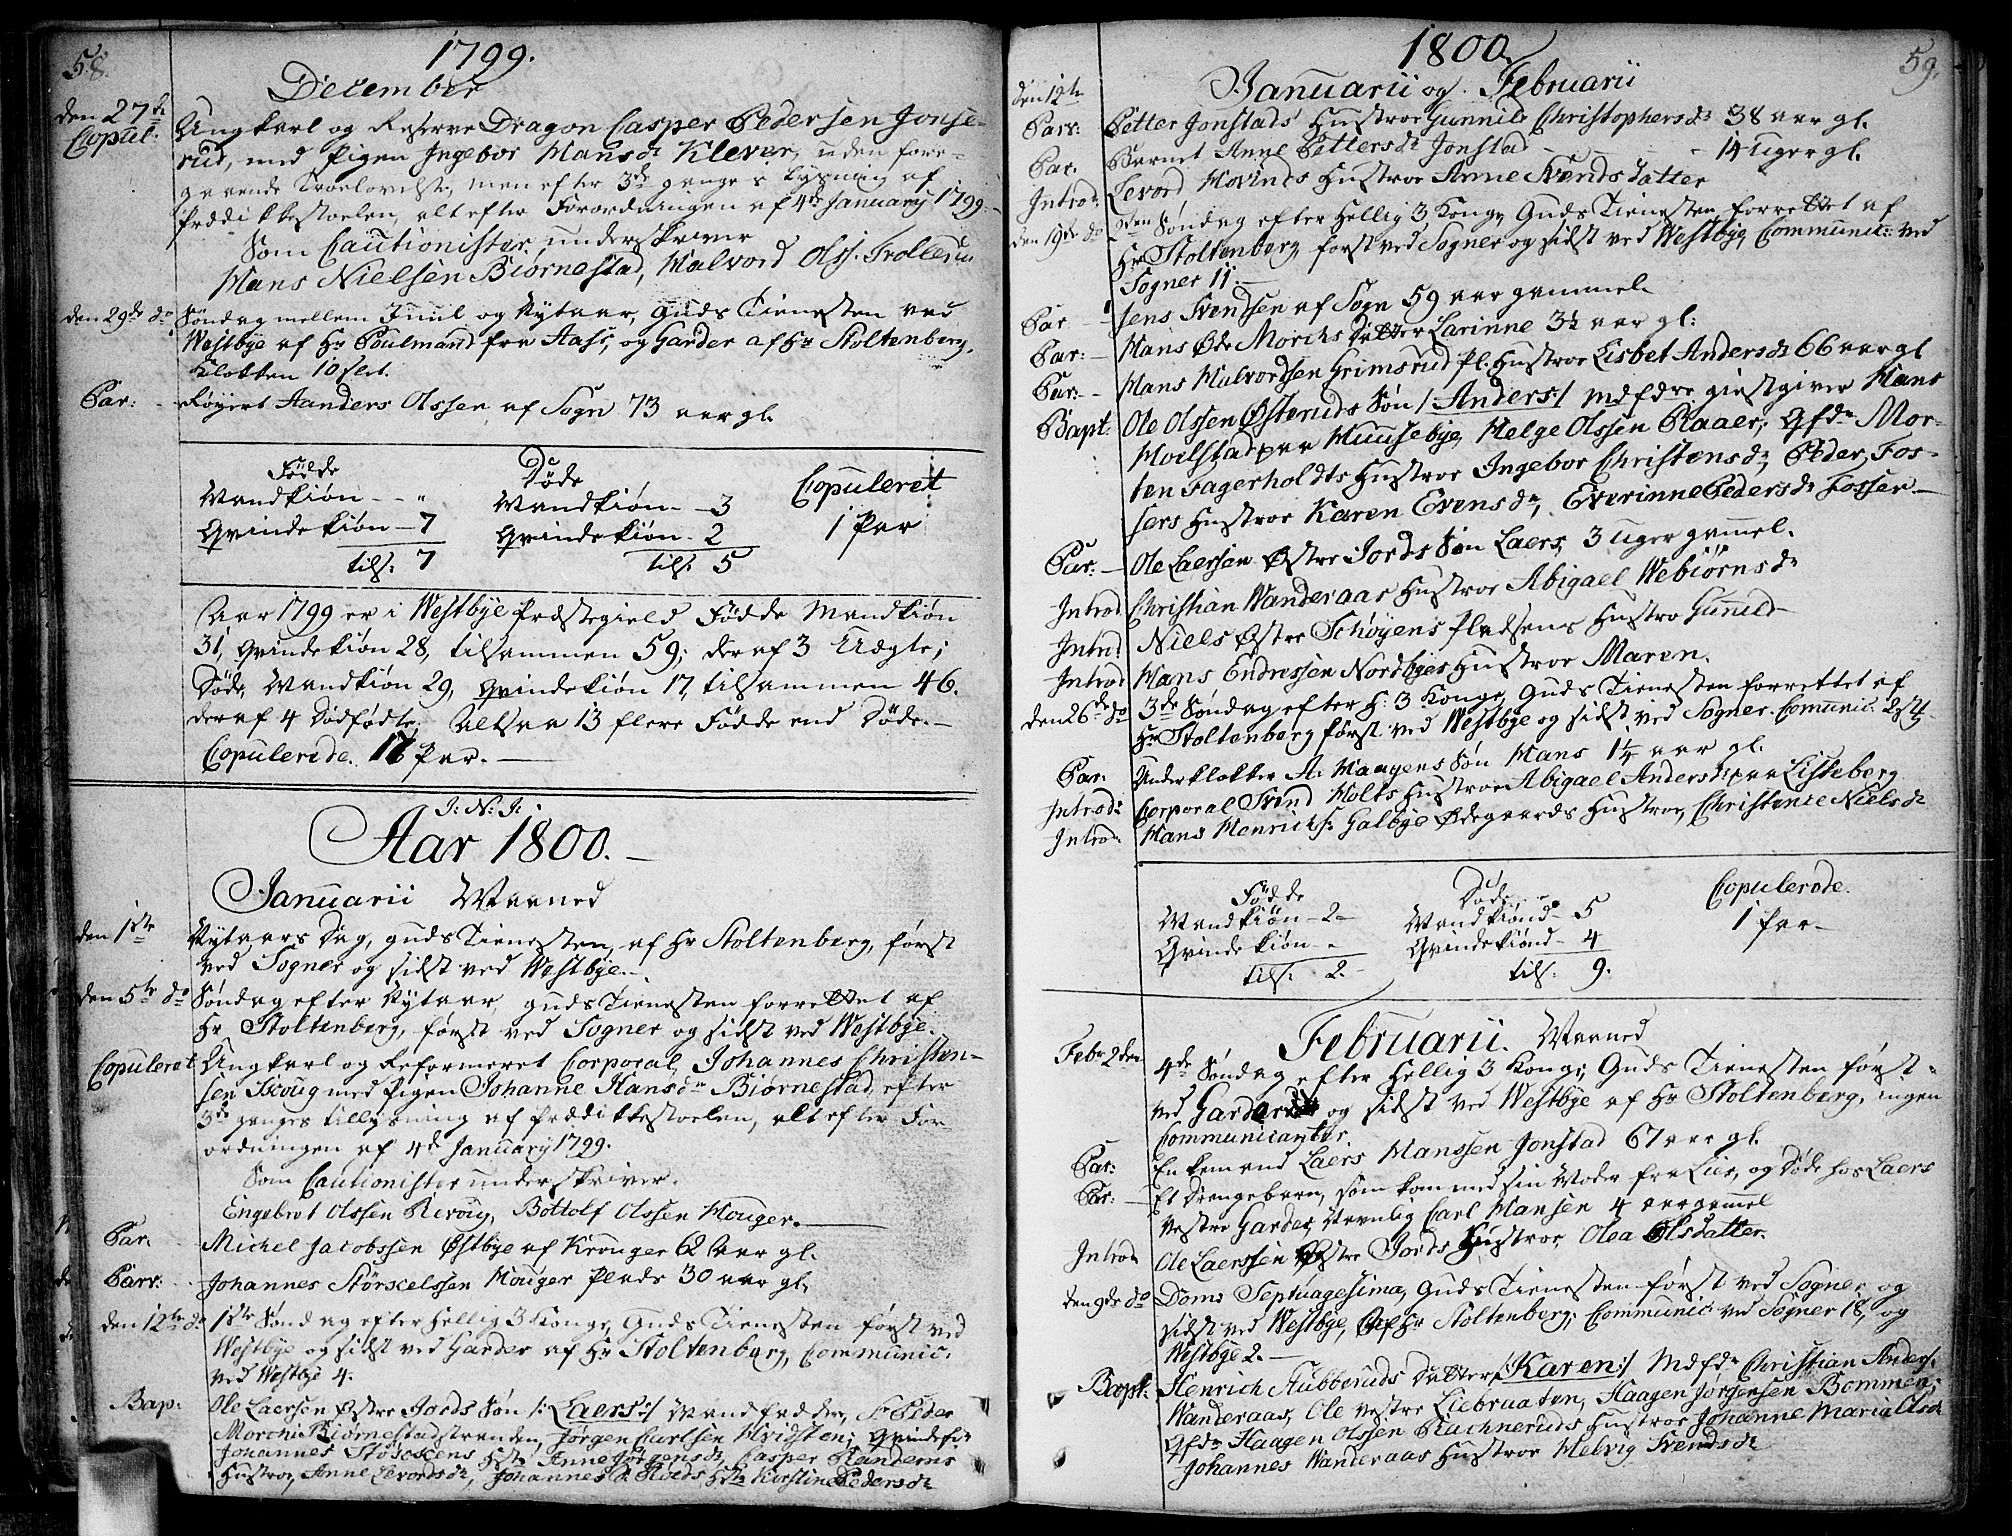 58.
1799.
December
den 27de Copul: Ungkarl og Reserve Dragon Casper Pedersen Jonse-
rud, med Pigen Ingebor Hansdr Klever, uden fore-
gaaende Troelovelse, men efter 3de ganges Lysning af
Prædikkestoelen, alt efter Forordningen af 4de January 1799.
Som Cautionister underskriver
Hans Nielsen Biørnestad, Halvord Olss. Trollerud
den 29de do Søndag mellem Juul og Nytaar, Guds Tienesten ved
Westbye af Hr Poulmand fra Aass, og Garder af Hr Stoltenberg.
Klokken 10 slet.
Par: Anders Olssen af Sogn 73 aar gl.
Fødde Døde Copuleret
Mandkiøn - - " Mandkiøn - 3 1 Par
Qvindekiøn - 7 Qvindekiøn - 2
tils: 7 tils: 5
Aar 1799 er i Westbye Præstegield Fødde Mandkiøn
31, Qvindekiøn 28, tilsammen 59; deraf 3 Uægte;
Døde Mandkiøn 29, Qvindekiøn 17, tilsammen 46.
deraf 4 Dødfødte. Altsaa 13 flere Fødde end Døde.
Copulerede Par.
J: N: J:
Aar 1800.
Januarii Maaned
den 1ste Nytaars Dag, Guds Tienesten, af Hr Stoltenberg, først
ved Sogner og sidst ved Westbye.
den 5te do Søndag efter Nytaar, Guds Tienesten forrettet af
Hr Stoltenberg, først ved Sogner og sidst ved Westbye.
Copuleret Ungkarl og Reformeret Corporal, Johannes Christen-
sen Scoug med Pigen Johanne Hansdr Biørnestad, efter
3de ganges tillysning af Prædikkestoelen, alt efter For
ordningen af 4de January 1799.
Som Cautionister underskriver.
Engebret Olssen Revoug, Bottolf Olssen Houger.
Par. Michel Jacobssen Østbye af Krouger 62 aar gl.
Parr: Johannes Størscelssen Houger Plads 30 aar gl.
den 12te do 1ste Søndag efter Hellig 3 Konge, Guds Tienesten først ved
Westbye og sidst ved Garder af Hr Stoltenberg, Communic.
ved Westbye 4.
Bap: Ole Laersen Østre Jords Søn /: Laers :/ Mandfadder, Sr Peder
Morch Biørnestadstranden, Jørgen Carlsen Hvidsten; Qvindefdr
Johannes Støscens Hst Anne Jørgensdr, Casper Randems
Hustroe, Anne Levordsdr, Johannes Roeds Hst Kirstine Pedersdr
1800. 59.
Januarii og Februarii
den 12te
Parr: Petter Jonstads Hustroe Gunnild Christophersdr 38 aar gl.
Par: Barnet Anne Pettersdr Jonstad - - - 14 Uger gl.
Introd: Levord Hovinds Hustroe Anne Svendsdatter
den 19de do 2den Søndag efter Hellig 3 Konge, Guds Tienesten forrettet af
Hr Stoltenberg, først ved Sogner og sidst ved Westbye, Communic: ved
Sogner 11.
Par Jens Svendsen af Sogn 59 aar gammel
Par: Hans Morchs Datter Larinne 3½ aar gl:
Par: Hans Halvordsen Grimsrud Pl. Hustroe Lisbet Andersdr 66 aar gl
Bapt: Ole Olssen Østeruds Søn /: Anders :/ Mdfdre giestgiver Hans
Hoilstad paa Huusebye, Helge Olssen Raaer; Qfdr Mor-
ten Fagerholdts Hustroe Ingebor Christensdr, Peder Fos-
sers Hustroe Karen Evensdr, Everinne Pedersdr Fosser
Par: Ole Laersen Østre Jords Søn Laers, 3 Uger gammel.
Introd Christian Wanderaas Hustroe Abigael Webiørnsdr
Introd Niels Østre Schøyens Pladsens Hustro Gunild
Introd Hans Endressen Nordbyes Hustroe Maren.
den 26de do 3de Søndag efter H: 3 Konge, Guds Tienesten forrettet af
Hr Stoltenberg først ved Westbye og sidst ved Sogner. Comunic.
Par. Underklokker A: Haagens Søn Hans 1¼ aar gl.
Introd: Corporal Svend Holts Hustroe Abigael Andersdr paa Listeberg
Introd: Hans Henrichs: Galbye Ødegaards Hustroe, Christense Nielsdr
Fødde Døde Copulerede.
Mandkiøn - 2 - Mandkiønd - 5 1 Par -
Qvindekiøn - Qvindekiønd - 4
tils: 2. tils: 9.
Februarii. Maaned
Febr 2den 4de Søndag efter Hellig 3 Konge, Guds Tienesten først
ved Garder og sidst ved Westbye af Hr Stoltenberg, ingen
Communicanter.
Par: Enkemand Laers Hanssen Jonstad 67 aar gl.
Par: Et Drengebarn, som kom med sin Moder fra Lier, og døde hos Laers
Vestre Garder, Navnlig Carl Hansen 4 aar gamel
Introd Ole Laerssen Østre Jords Hustroe, Olea Olsdatter.
den 9de do Dom: Septuagesima, Guds Tienesten først ved Sogner og
sidst ved Westbye, af Hr Stoltenberg; Communic: ved Sogner 18, og
Westbye 2.
Bapt: Henrich Stubberuds Datter /: Karen :/ Mdfdr Christian Anders:
Wanderaas, Ole Vestre Liebraaten, Haagen Jørgensen Bommen;
Qfdr Haagen Olssen Rachneruds Hustroe Johanne Maria Olsdr
Johannes Wanderaas Hustroe Helvig Svendsdr